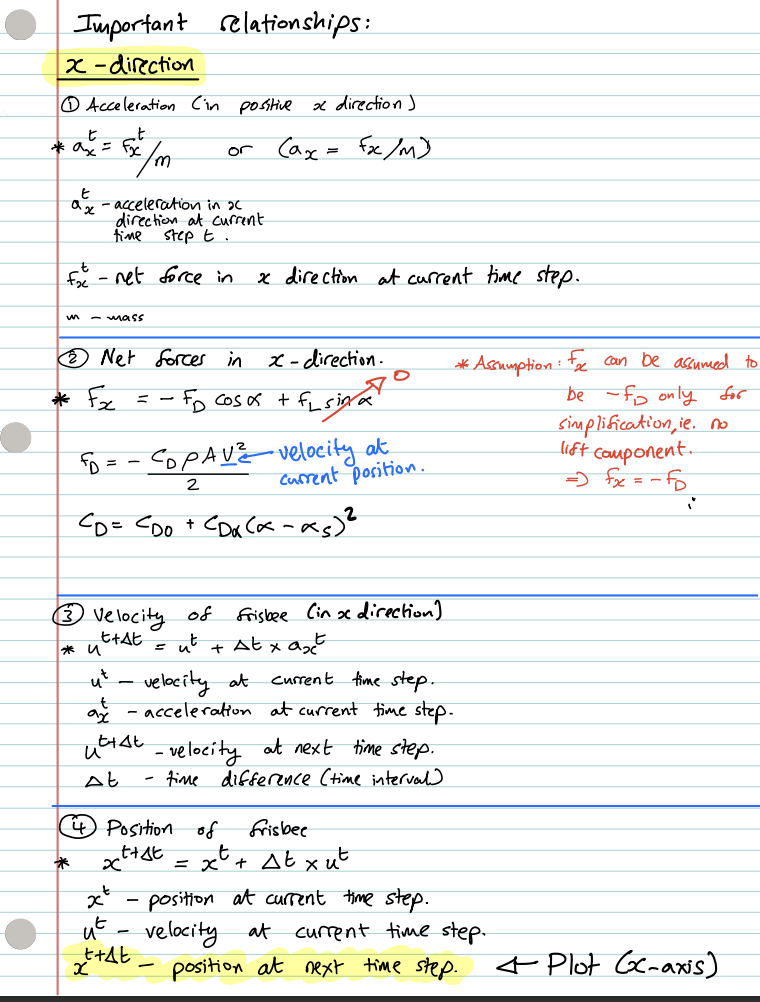 Important relationships:
x-direction
① Acceleration (in positive x direction)
* aₓᵗ = Fₓᵗ/m or (aₓ = Fₓ/m)
aₓᵗ - acceleration in x
direction at current
time step t.
Fₓᵗ - net force in x direction at current time step.
m - mass
② Net forces in x-direction.
* Fₓ = - F_D cosα + F_L sinα → 0
F_D = - C_D ρ A V² / 2 ← velocity at
current position.
C_D = C_D0 + C_Dα (α - α_s)²
* Assumption: Fₓ can be assumed to
be -F_D only for
simplification, ie. no
lift component.
⇒ Fₓ = -F_D
③ Velocity of frisbee (in x direction)
* u^(t+Δt) = uᵗ + Δt × aₓᵗ
uᵗ - velocity at current time step.
aₓᵗ - acceleration at current time step.
u^(t+Δt) - velocity at next time step.
Δt - time difference (time interval)
④ Position of frisbee
* x^(t+Δt) = xᵗ + Δt × uᵗ
xᵗ - position at current time step.
uᵗ - velocity at current time step.
x^(t+Δt) - position at next time step. ← Plot (x-axis)